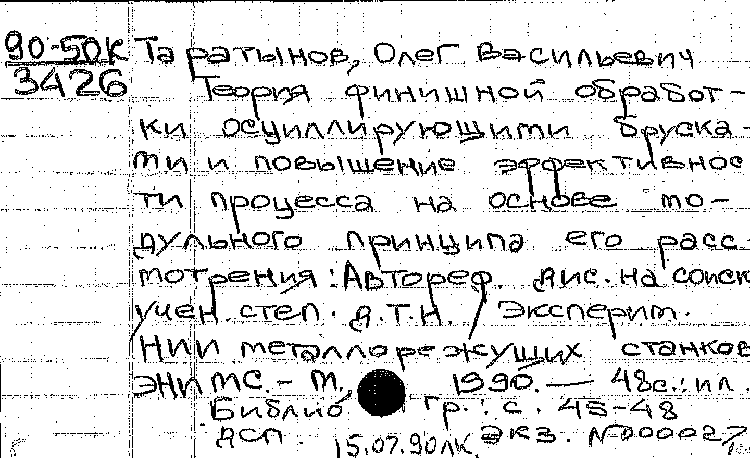 90-50К Таратынов, Олег Васильевич
3426 Теория финишной обработ-
ки осциллирующими бруска-
ми и повышение эффективнос
ти процесса на основе мо-
дульного принципа его расс
мотрения: Автореф. дис. на соиск
учен. степ. д.т.н. / Эксперим.
НИИ металлорежущих станков
ЭНИМС. - М., 1990. — 48с.: ил.
Библиогр.: с. 45-48
ДСП. 15.07.90ЛК. Экз. N000027